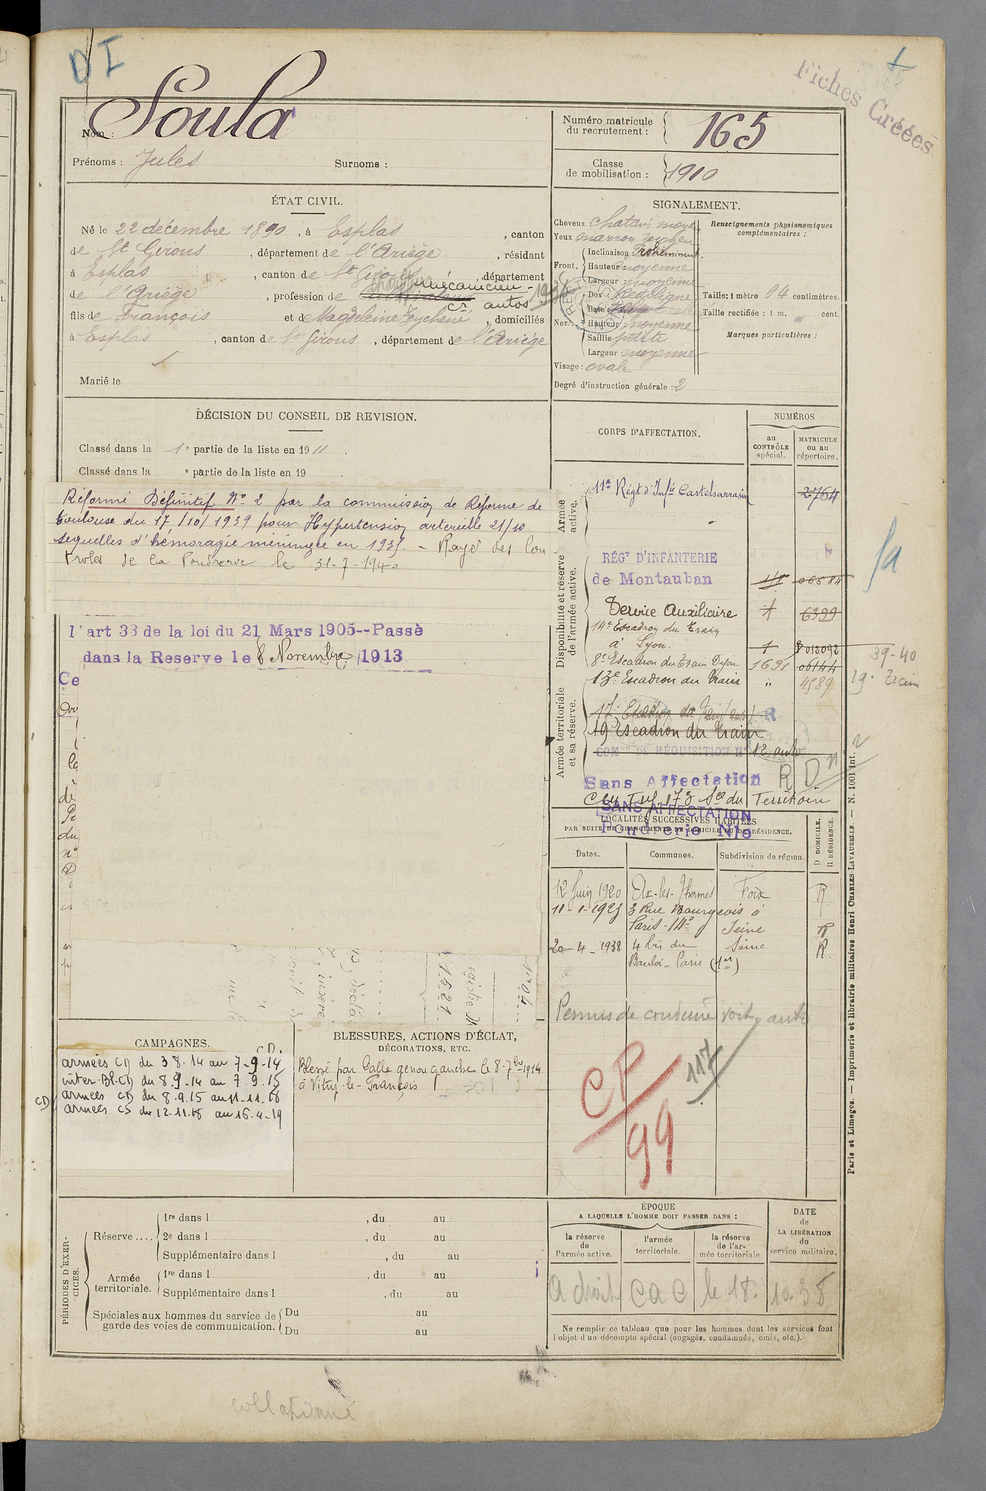 D I
Fiches Créées
Nom : Soula
Prénoms : Jules Surnoms :
Numéro matricule du recrutement : 165
Classe de mobilisation : 1910
ÉTAT CIVIL.
Né le 22 décembre 1890, à Esplas, canton
de St Girons, département de l'Ariège, résidant
à Esplas, canton de St Girons, département
de l'Ariège, profession de mécanicien-
cr. autos
fils de François et de Magdeleine Eychenié, domiciliés
à Esplas, canton de St Girons, département de l'Ariège
Marié le
SIGNALEMENT.
Cheveux chatain moyen
Yeux marron
Front. Inclinaison
Hauteur moyenne
Largeur moyenne
Nez. Dos rectiligne
Base
Hauteur moyenne
Saillie petite
Largeur moyenne
Visage : ovale
Degré d'instruction générale : 2
Renseignements physionomiques complémentaires :
Taille : 1 mètre 64 centimètres.
Taille rectifiée : 1 m. cent.
Marques particulières :
DÉCISION DU CONSEIL DE REVISION.
Classé dans la 1e partie de la liste en 1911.
Classé dans la e partie de la liste en 19
Réformé Définitif No 2 par la commission de Réforme de
Toulouse du 17/10/1939 pour Hypertension artérielle 21/10
sequelles d'hémoragie méningée en 1937. - Rayé des Con-
troles de la Poudrerie le 31-7-1940
l'art 33 de la loi du 21 Mars 1905--Passé
dans la Reserve le 8 Novembre 1913
Ce
CORPS D'AFFECTATION.
NUMÉROS
au CONTRÔLE spécial.
MATRICULE ou au répertoire.
Armée active.
11e Régt d'Infie Castelsarrasin 2764
Disponibilité et réserve de l'armée active.
RÉGT D'INFANTERIE
de Montauban
Service Auxiliaire 6399
14e Escadron du Train
à Lyon.
8e Escadron du Train Dijon 1691 06144
13e Escadron du Train " 4589
39-40
19e Train
Armée territoriale et sa réserve.
17e Escadron du Train
19 Escadron du Train
COM DE RÉQUISITION No 12 auto
Sans Affectation R D
Territoire
SANS AFFECTATION
Poudrerie Nle
LOCALITÉS SUCCESSIVES HABITÉES
PAR SUITE DE CHANGEMENTS DE DOMICILE OU DE RÉSIDENCE.
Dates. Communes. Subdivision de région. D DOMICILE. R RÉSIDENCE.
12 Juin 1920 Ax-les-Thermes Foix R
11-1-1923 3 Rue Bourgeois à
Paris-14e Seine R
20-4-1938 4 bis du Seine R
Bouloi-Paris (1er)
Permis de conduire voit. auto
CP
99
117
CAMPAGNES.
CD.
armées CD du 3 8.14 au 7-9-14
inter. Bl. CD du 8.9.14 au 7.9.15
armées CD du 8.9.15 au 11.11.18
armées CS du 12.11.18 au 16.4.19
CD
BLESSURES, ACTIONS D'ÉCLAT,
DÉCORATIONS, ETC.
Blessé par balle genou gauche le 8-7bre-1914
à Vitry-le-François
PÉRIODES D'EXERCICES.
Réserve.... 1re dans l , du au
2e dans l , du au
Supplémentaire dans l , du au
Armée territoriale. 1re dans l , du au
Supplémentaire dans l , du au
Spéciales aux hommes du service de garde des voies de communication. Du au
Du au
ÉPOQUE
A LAQUELLE L'HOMME DOIT PASSER DANS :
la réserve de l'armée active.
l'armée territoriale.
la réserve de l'armée territoriale
DATE DE LA LIBÉRATION du service militaire.
a droit CaC le 18. 10.38
Ne remplir ce tableau que pour les hommes dont les services font
l'objet d'un décompte spécial (engagés, condamnés, omis, etc.).
Paris et Limoges. — Imprimerie et librairie militaires Henri CHARLES-LAVAUZELLE. — N. 1001 int.
collationné